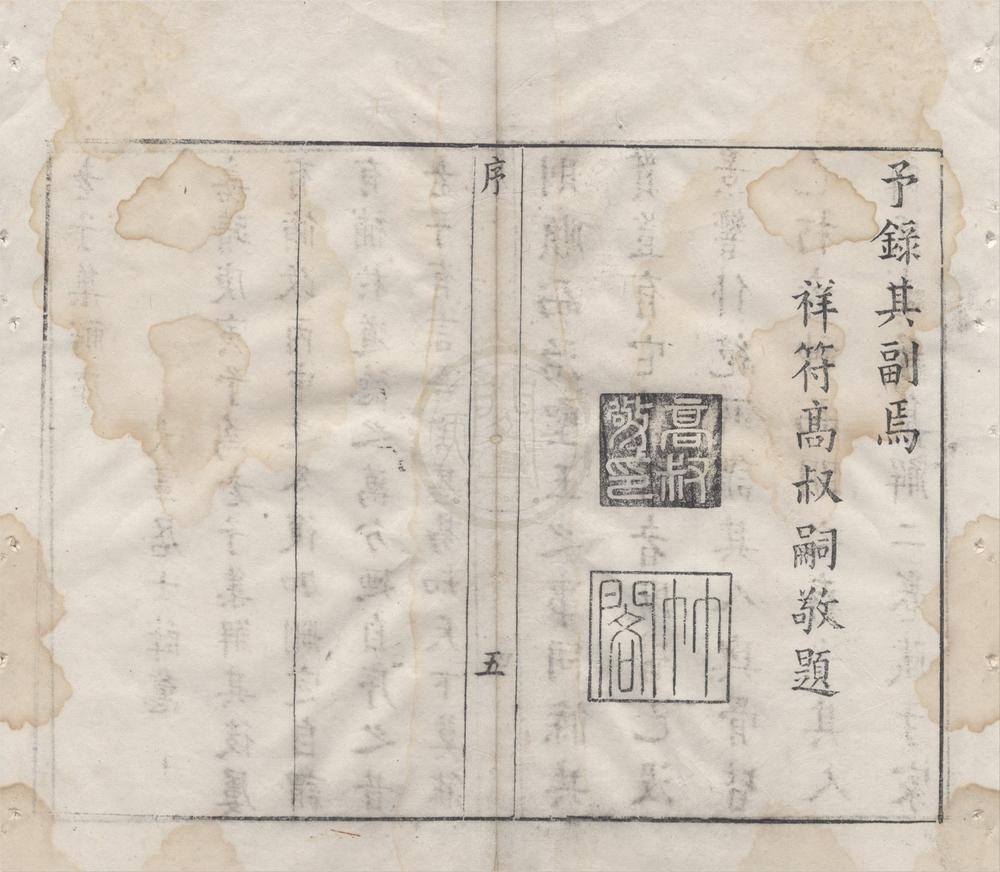 予錄其副焉
祥符髙叔嗣敬題
高叔
嗣印
竹
閣
序
五